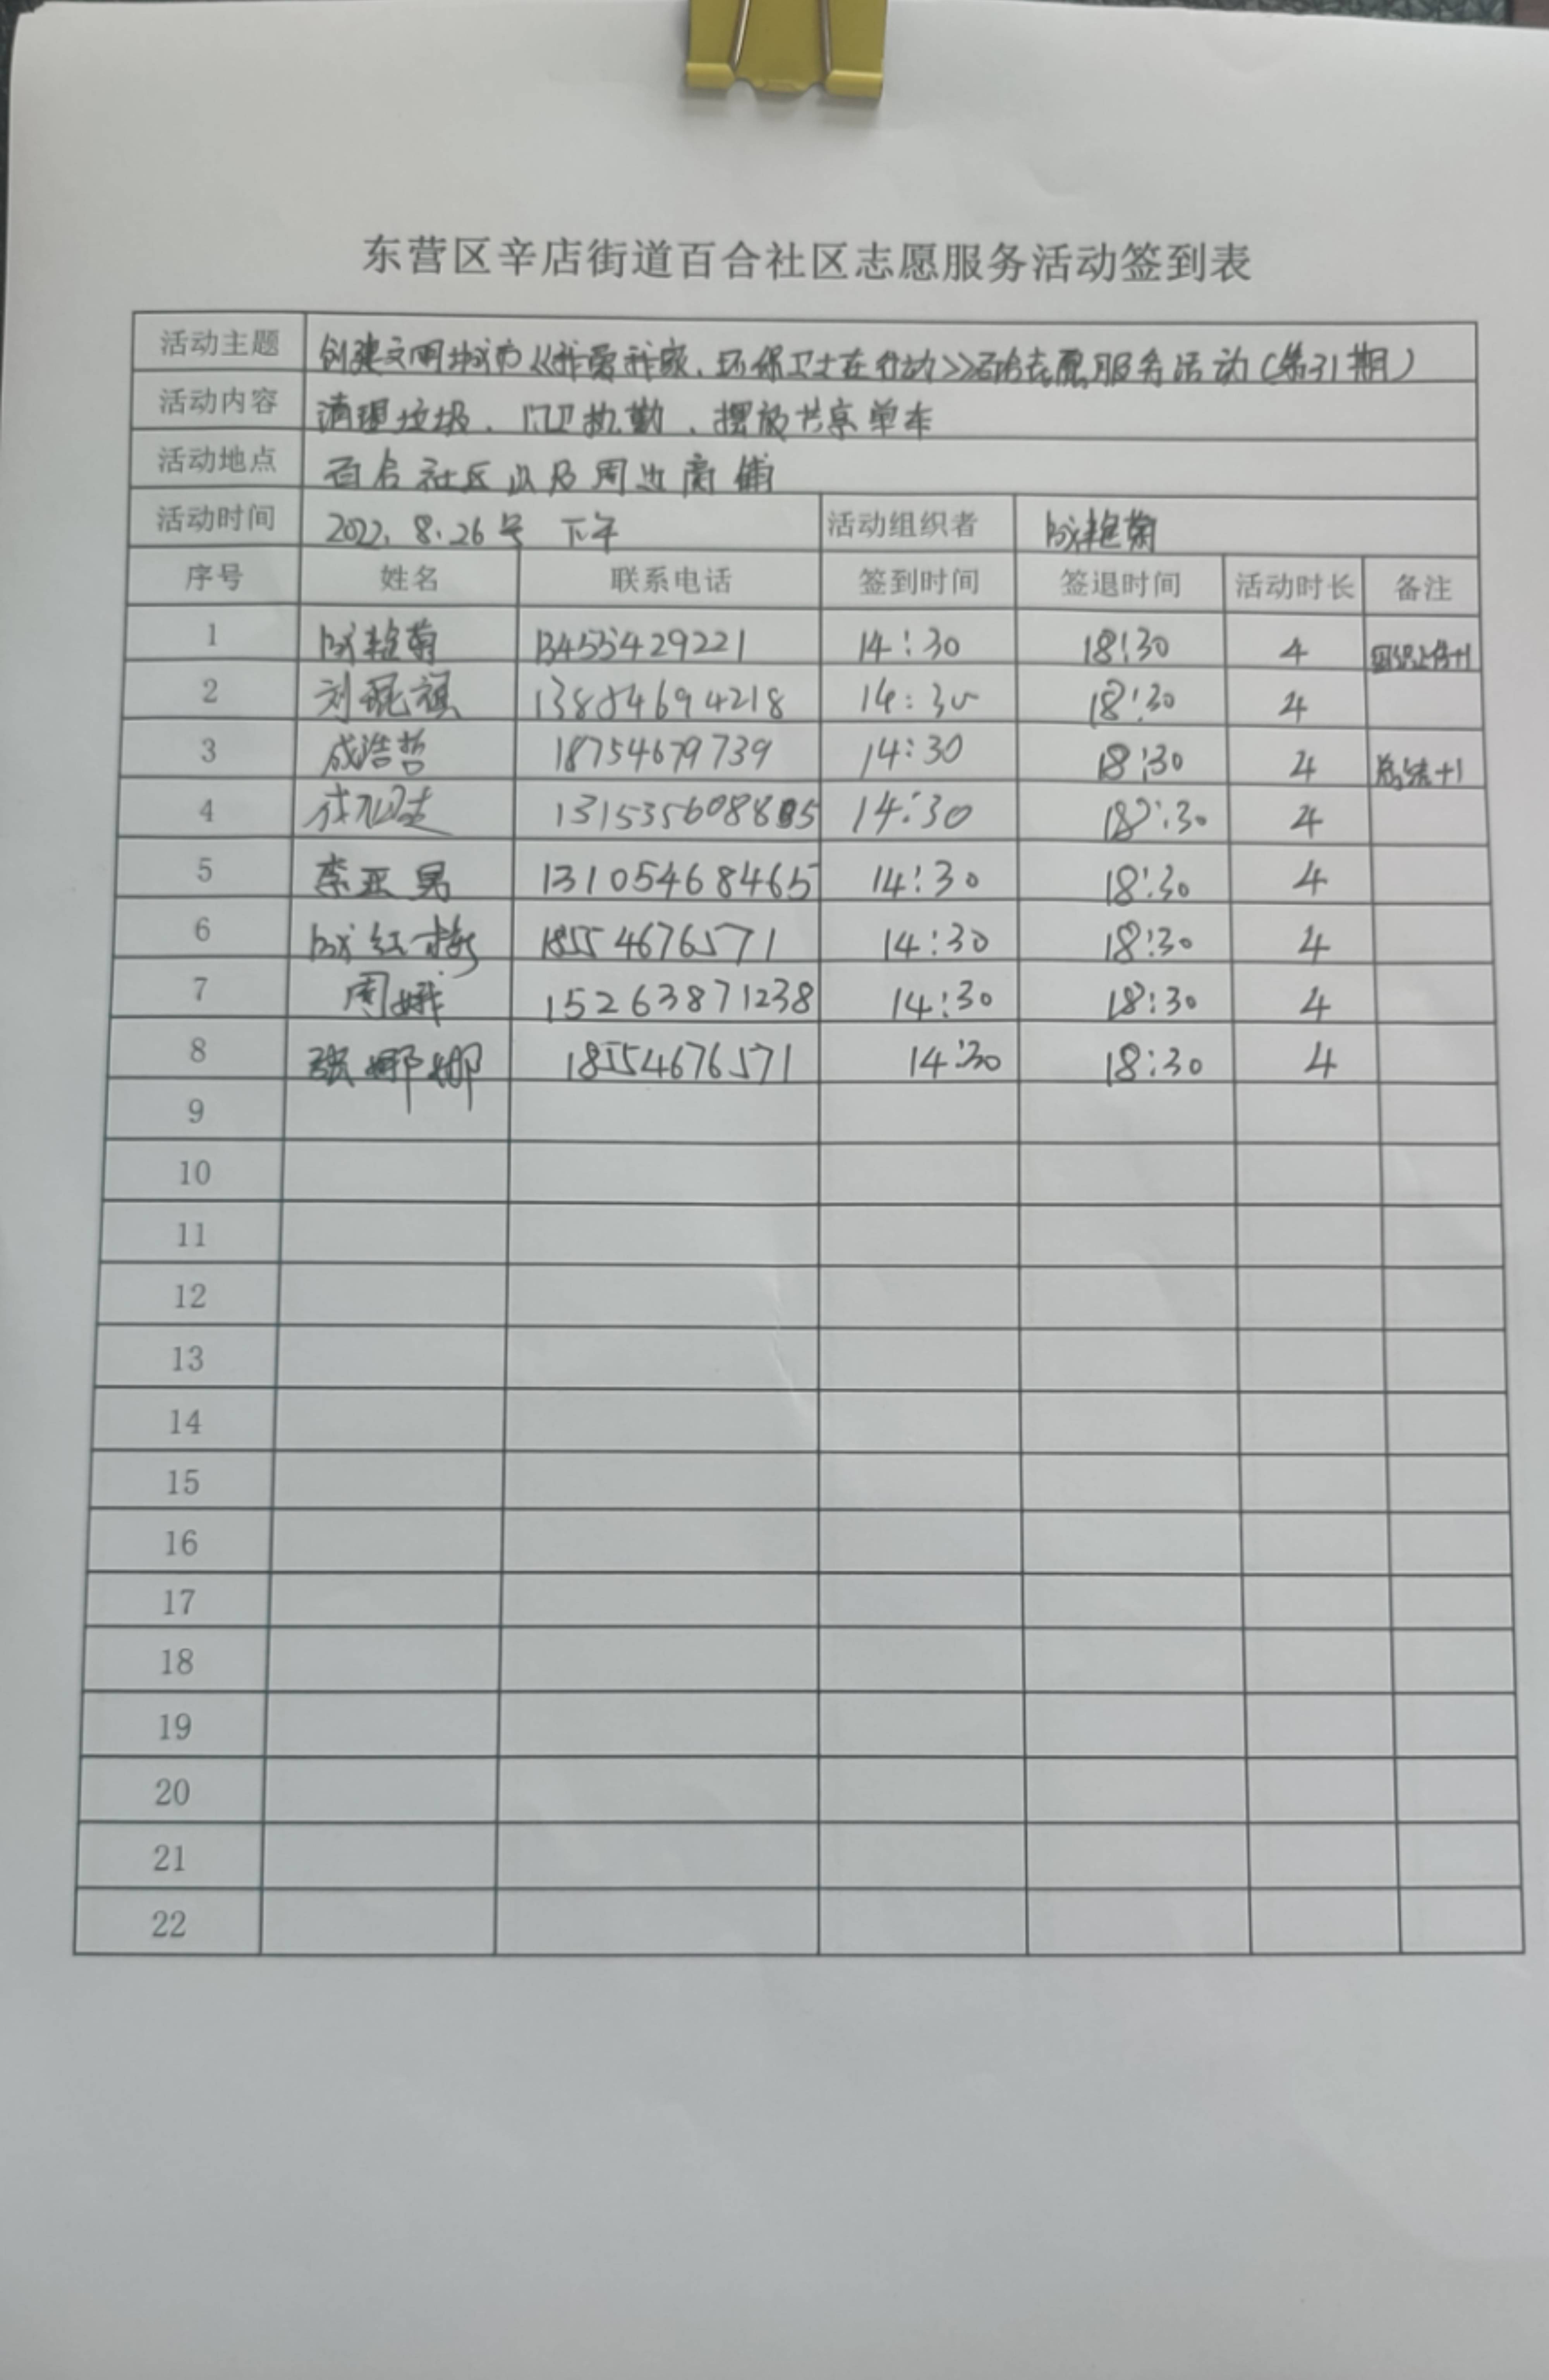 东营区辛店街道百合社区志愿服务活动签到表
活动主题 创建文明城市《我爱我家、环保卫士在行动》百合志愿服务活动(第31期)
活动内容 清理垃圾、门卫执勤、摆放共享单车
活动地点 百合社区以及周边商铺
活动时间 2022.8.26号 下午 活动组织者 成艳菊
序号 姓名 联系电话 签到时间 签退时间 活动时长 备注
1 成艳菊 13455429221 14:30 18:30 4 组织上传+1
2 刘琨祺 13884694218 14:30 18:30 4
3 成浩哲 18754679739 14:30 18:30 4 总结+1
4 14:30 18:30 4
5 李亚男 13105468465 14:30 18:30 4
6 成红梅 18554676571 14:30 18:30 4
7 周娥 15263871238 14:30 18:30 4
8 张娜娜 18554676571 14:30 18:30 4
9
10
11
12
13
14
15
16
17
18
19
20
21
22